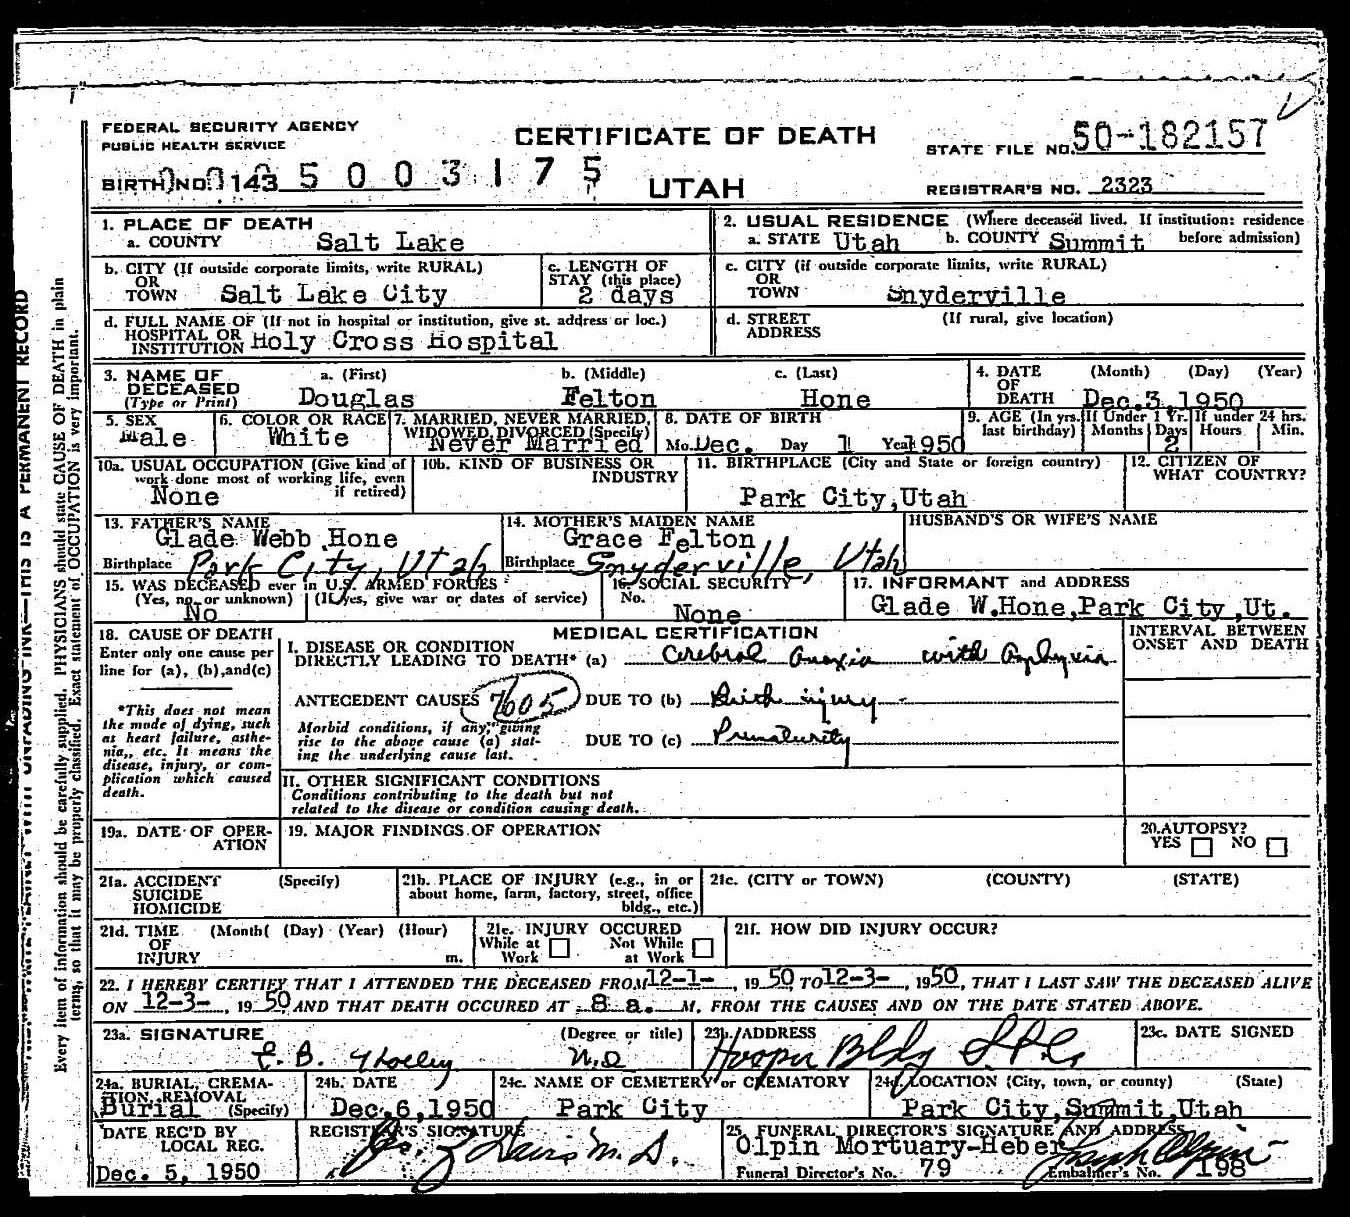 FEDERAL SECURITY AGENCY
PUBLIC HEALTH SERVICE
CERTIFICATE OF DEATH
STATE FILE NO. 50-182157
BIRTH NO. 143 5 0 0 3 1 7 5
UTAH
REGISTRAR'S NO. 2323
1. PLACE OF DEATH
a. COUNTY Salt Lake
2. USUAL RESIDENCE (Where deceased lived. If institution: residence before admission)
a. STATE Utah b. COUNTY Summit
b. CITY (If outside corporate limits, write RURAL)
OR
TOWN Salt Lake City
c. LENGTH OF
STAY (this place)
2 days
c. CITY (if outside corporate limits, write RURAL)
OR
TOWN Snyderville
d. FULL NAME OF (If not in hospital or institution, give st. address or loc.)
HOSPITAL OR
INSTITUTION Holy Cross Hospital
d. STREET (If rural, give location)
ADDRESS
3. NAME OF
DECEASED
(Type or Print)
a. (First) b. (Middle) c. (Last)
Douglas Felton Hone
4. DATE (Month) (Day) (Year)
OF
DEATH Dec.3,1950
5. SEX
Male
6. COLOR OR RACE
White
7. MARRIED, NEVER MARRIED,
WIDOWED, DIVORCED (Specify)
Never Married
8. DATE OF BIRTH
Mo. Dec. Day 1 Year 1950
9. AGE (In yrs. last birthday)
If Under 1 Yr. Months Days 2
If under 24 hrs. Hours Min.
10a. USUAL OCCUPATION (Give kind of
work done most of working life, even
if retired)
None
10b. KIND OF BUSINESS OR
INDUSTRY
11. BIRTHPLACE (City and State or foreign country)
Park City,Utah
12. CITIZEN OF
WHAT COUNTRY?
13. FATHER'S NAME
Glade Webb Hone
Birthplace Park City, Utah
14. MOTHER'S MAIDEN NAME
Grace Felton
Birthplace Snyderville, Utah
HUSBAND'S OR WIFE'S NAME
15. WAS DECEASED ever in U.S. ARMED FORCES
(Yes, no, or unknown) (If yes, give war or dates of service)
No
16. SOCIAL SECURITY
No.
None
17. INFORMANT and ADDRESS
Glade W.Hone,Park City,Ut.
18. CAUSE OF DEATH
Enter only one cause per
line for (a), (b),and(c)
*This does not mean
the mode of dying, such
as heart failure, asthe-
nia,, etc. It means the
disease, injury, or com-
plication which caused
death.
MEDICAL CERTIFICATION
I. DISEASE OR CONDITION
DIRECTLY LEADING TO DEATH* (a) Cerebral Anoxia with Asphyxia
ANTECEDENT CAUSES 7605 DUE TO (b) Birth injury
Morbid conditions, if any, giving
rise to the above cause (a) stat-
ing the underlying cause last.
DUE TO (c) Prematurity
INTERVAL BETWEEN
ONSET AND DEATH
II. OTHER SIGNIFICANT CONDITIONS
Conditions contributing to the death but not
related to the disease or condition causing death.
19a. DATE OF OPER-
ATION
19. MAJOR FINDINGS OF OPERATION
20.AUTOPSY?
YES NO
21a. ACCIDENT (Specify)
SUICIDE
HOMICIDE
21b. PLACE OF INJURY (e.g., in or
about home, farm, factory, street, office
bldg., etc.)
21c. (CITY or TOWN) (COUNTY) (STATE)
21d. TIME (Month( (Day) (Year) (Hour)
OF
INJURY m.
21e. INJURY OCCURED
While at Work Not While at Work
21f. HOW DID INJURY OCCUR?
22. I HEREBY CERTIFY THAT I ATTENDED THE DECEASED FROM 12-1-, 1950 TO 12-3-, 1950, THAT I LAST SAW THE DECEASED ALIVE
ON 12-3-, 1950 AND THAT DEATH OCCURED AT 8 a. M, FROM THE CAUSES AND ON THE DATE STATED ABOVE.
23a. SIGNATURE (Degree or title)
E. B. M.D
23b. ADDRESS
Hooper Bldg S.L.C.
23c. DATE SIGNED
24a. BURIAL, CREMA-
TION, REMOVAL
Burial (Specify)
24b. DATE
Dec.6,1950
24c. NAME OF CEMETERY or CREMATORY
Park City
24d. LOCATION (City, town, or county) (State)
Park City,Summit,Utah
DATE REC'D BY
LOCAL REG.
Dec. 5, 1950
REGISTRAR'S SIGNATURE
Davis M. D.
25. FUNERAL DIRECTOR'S SIGNATURE AND ADDRESS
Olpin Mortuary-Heber
Funeral Director's No. 79 Embalmer's No. 198
Every item of information should be carefully supplied. PHYSICIANS should state CAUSE OF DEATH in plain
terms, so that it may be properly classified. Exact statement of OCCUPATION is very important.
UNFADING INK—THIS IS A PERMANENT RECORD